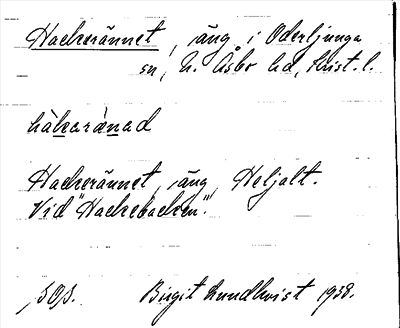 Hackerännet, äng i Oderljunga
sn, N. Åsbo hd, Krist. l.
hàkarànad
Hackerännet, äng, Heljalt.
Vid "Hackebacken".
SOS. Birgit Lundkvist 1938.